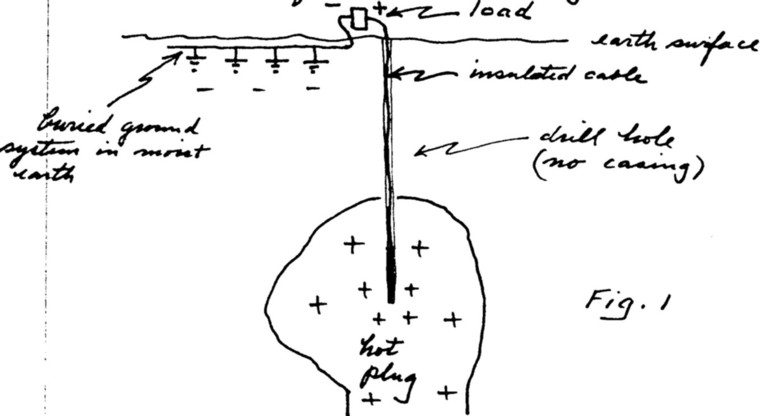 - + load
earth surface
insulated cable
buried ground
system in moist
earth
drill hole
(no casing)
- - -
+ +
+ +
+
+ + +
Fig. 1
hot
plug
+ +